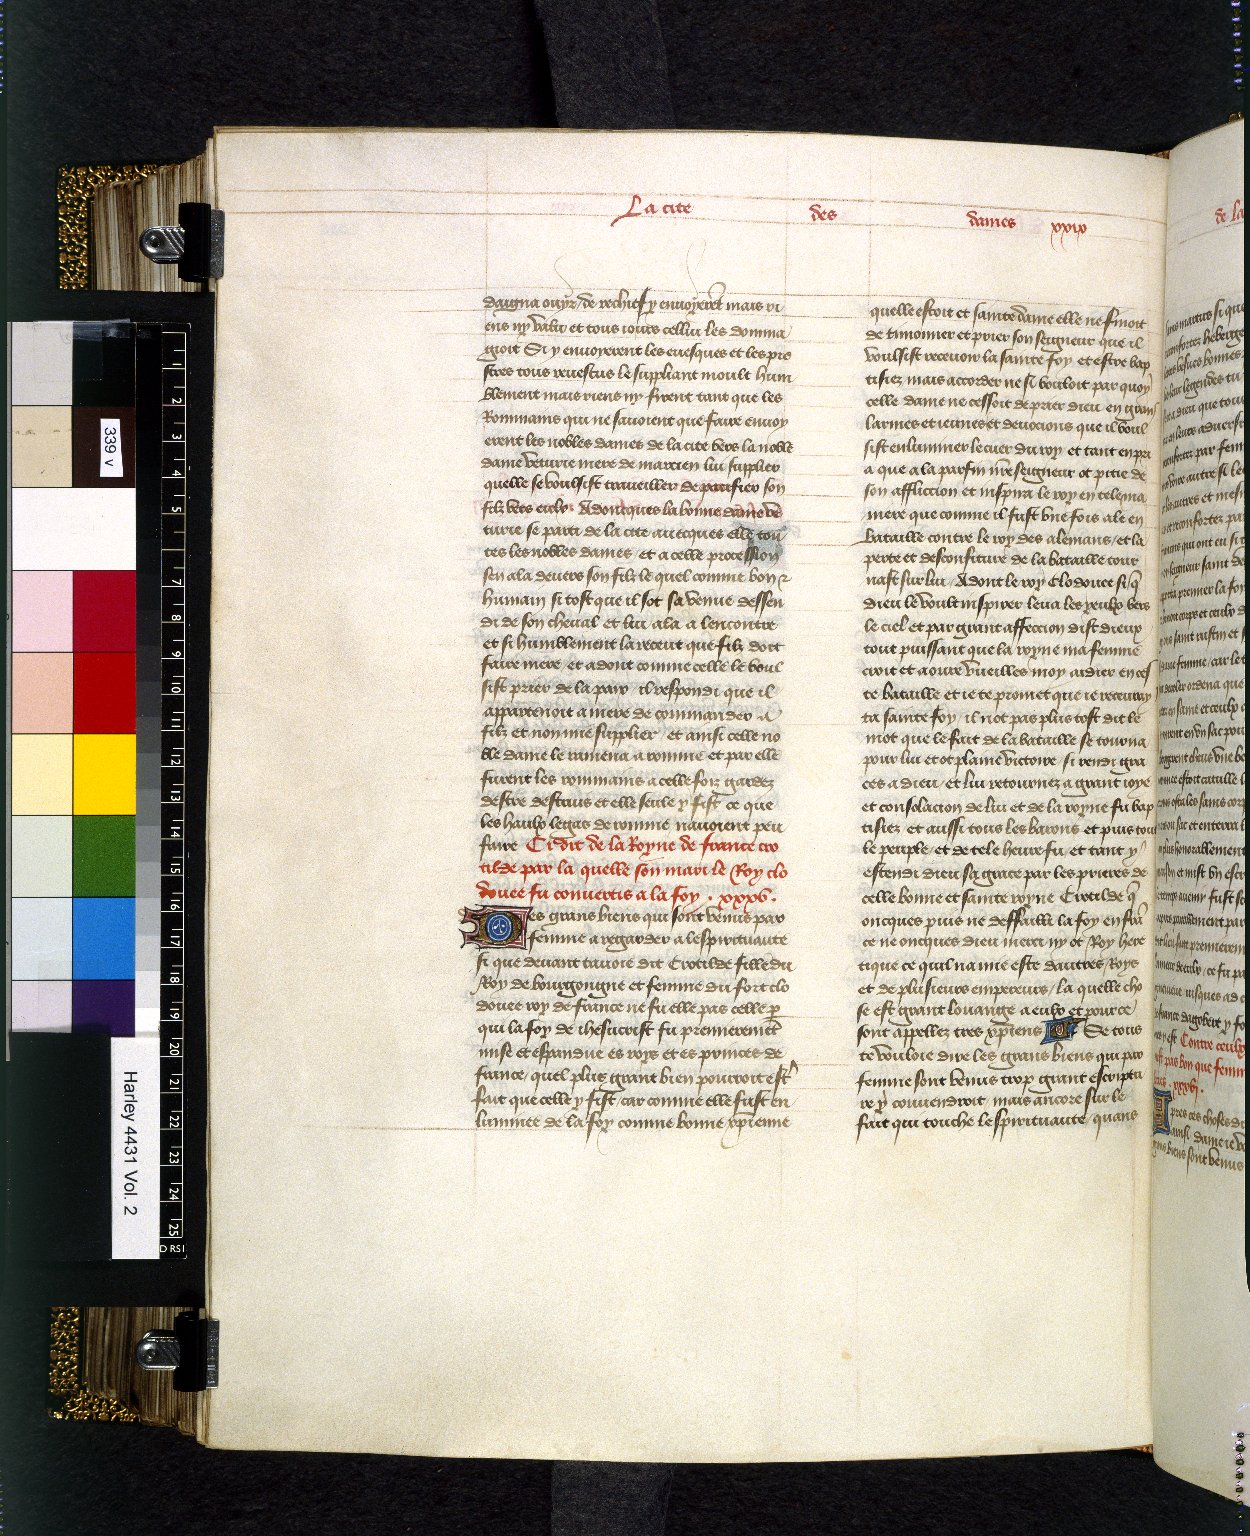 La cite des dames xxix
daigna ouyr / de rechief y enuoyerẽt mais ri
ens ny valu et tous iours cellui les domma
gioit Si y enuoyerent les euesques et les pre
stres tous reuestus le suppliant moult hum
blement mais riens ny firent tant que les
Rommains qui ne sauoient que faire enuoy
erent les nobles dames de la cite vers la noble
dame veturie mere de marcien lui supplier
quelle se voulsist traueiller de pacifier son
filz vers eulx. Adoncques la bonne dame ve
turie se parti de la cite auecques elle tou
tes les nobles dames / et a celle procession
sen ala deuers son filz le quel comme bon &
humain si tost que il sot sa venue dessen
di de son cheual et lui ala a lencontre
et si humblement la receut que filz doit
faire mere / et adont comme celle le voul
sist prier de la paix il respondi que il
appartenoit a mere de commander a
filz et non mie supplier / et ainsi celle no
ble dame le ramena a romme et par elle
furent les rommains a celle foiz gardez
destre destruis et elle seule y fist ce que
les haulx legas de romme nauoient peu
faire Ci dit de la Royne de france cro
tilde par la quelle son mari le Roy clo
douee fu conuertis a la foy . xxxv .
Des grans biens qui sont venus par
femme a regarder a lespirituaute
si que deuant tauoie dit Crotilde fille du
Roy de bourgongne et femme du fort clo
douee roy de france ne fu elle pas celle p̱
qui la foy de ihesucrist fu premieremẽt
mise et espandue es roys et es princes de
france / quel plus grant bien pourroit est̾
fait que celle y fist / car comme elle fust en
luminee de la foy comme bonne xp̃ienne
quelle estoit et sainte dame elle ne finoit
de timonner et prier son seigneur que il
voulsist receuoir la sainte foy et estre bap
tisiez mais accorder ne si vouloit par quoy
celle dame ne cessoit de prier dieu en grans
larmes et ieunes et deuocions que il voul
sist enluminer le cuer du roy et tant en pri
a que a la parfin nr̃e seigneur ot pitie de
son affliccion et inspira le roy en tele ma
niere que comme il fust vne fois ale en
bataille contre le roy des alemans / et la
perte et desconfiture de la bataille tour
nast sur lui / Adont le roy Clodouee si q̃
dieu le voult inspirer leua les yeulx vers
le ciel et par grant affeccion dist dieux
tout puissant que la royne ma femme
croit et aoure vueilles moy aidier en ces
te bataille et ie te promet que ie receuray
ta sainte foy / il not pas plus tost dit le
mot que le fait de la bataille se tourna
pour lui et ot plaine victoire / si rendi gra
ces a dieu / et lui retournez a grant ioye
et consolacion de lui et de la royne fu bap
tisiez et aussi tous les barons et puis tout
le peuple / et de tele heure fu / et tant y
estendi dieu sa grace par les prieres de
celle bonne et sainte royne Crotilde q̃
oncques puis ne deffailli la foy en fran
ce ne oncques dieu merci ny ot Roy here
tique ce quil na mie este dautres Roys
et de plusieurs empereurs / la quelle cho
se est grant louange a eulx et pource
sont appellez tres xp̃iens Se tous
te vouloie dire les grans biens qui par
femme sont venus trop grant escriptu
re y couuendroit / mais ancore sur le
fait qui touche lespirituaute / quans
339 v
Harley 4431 Vol. 2
1
2
3
4
5
7
8
9
10
11
12
13
14
15
16
17
18
20
21
22
23
24
25